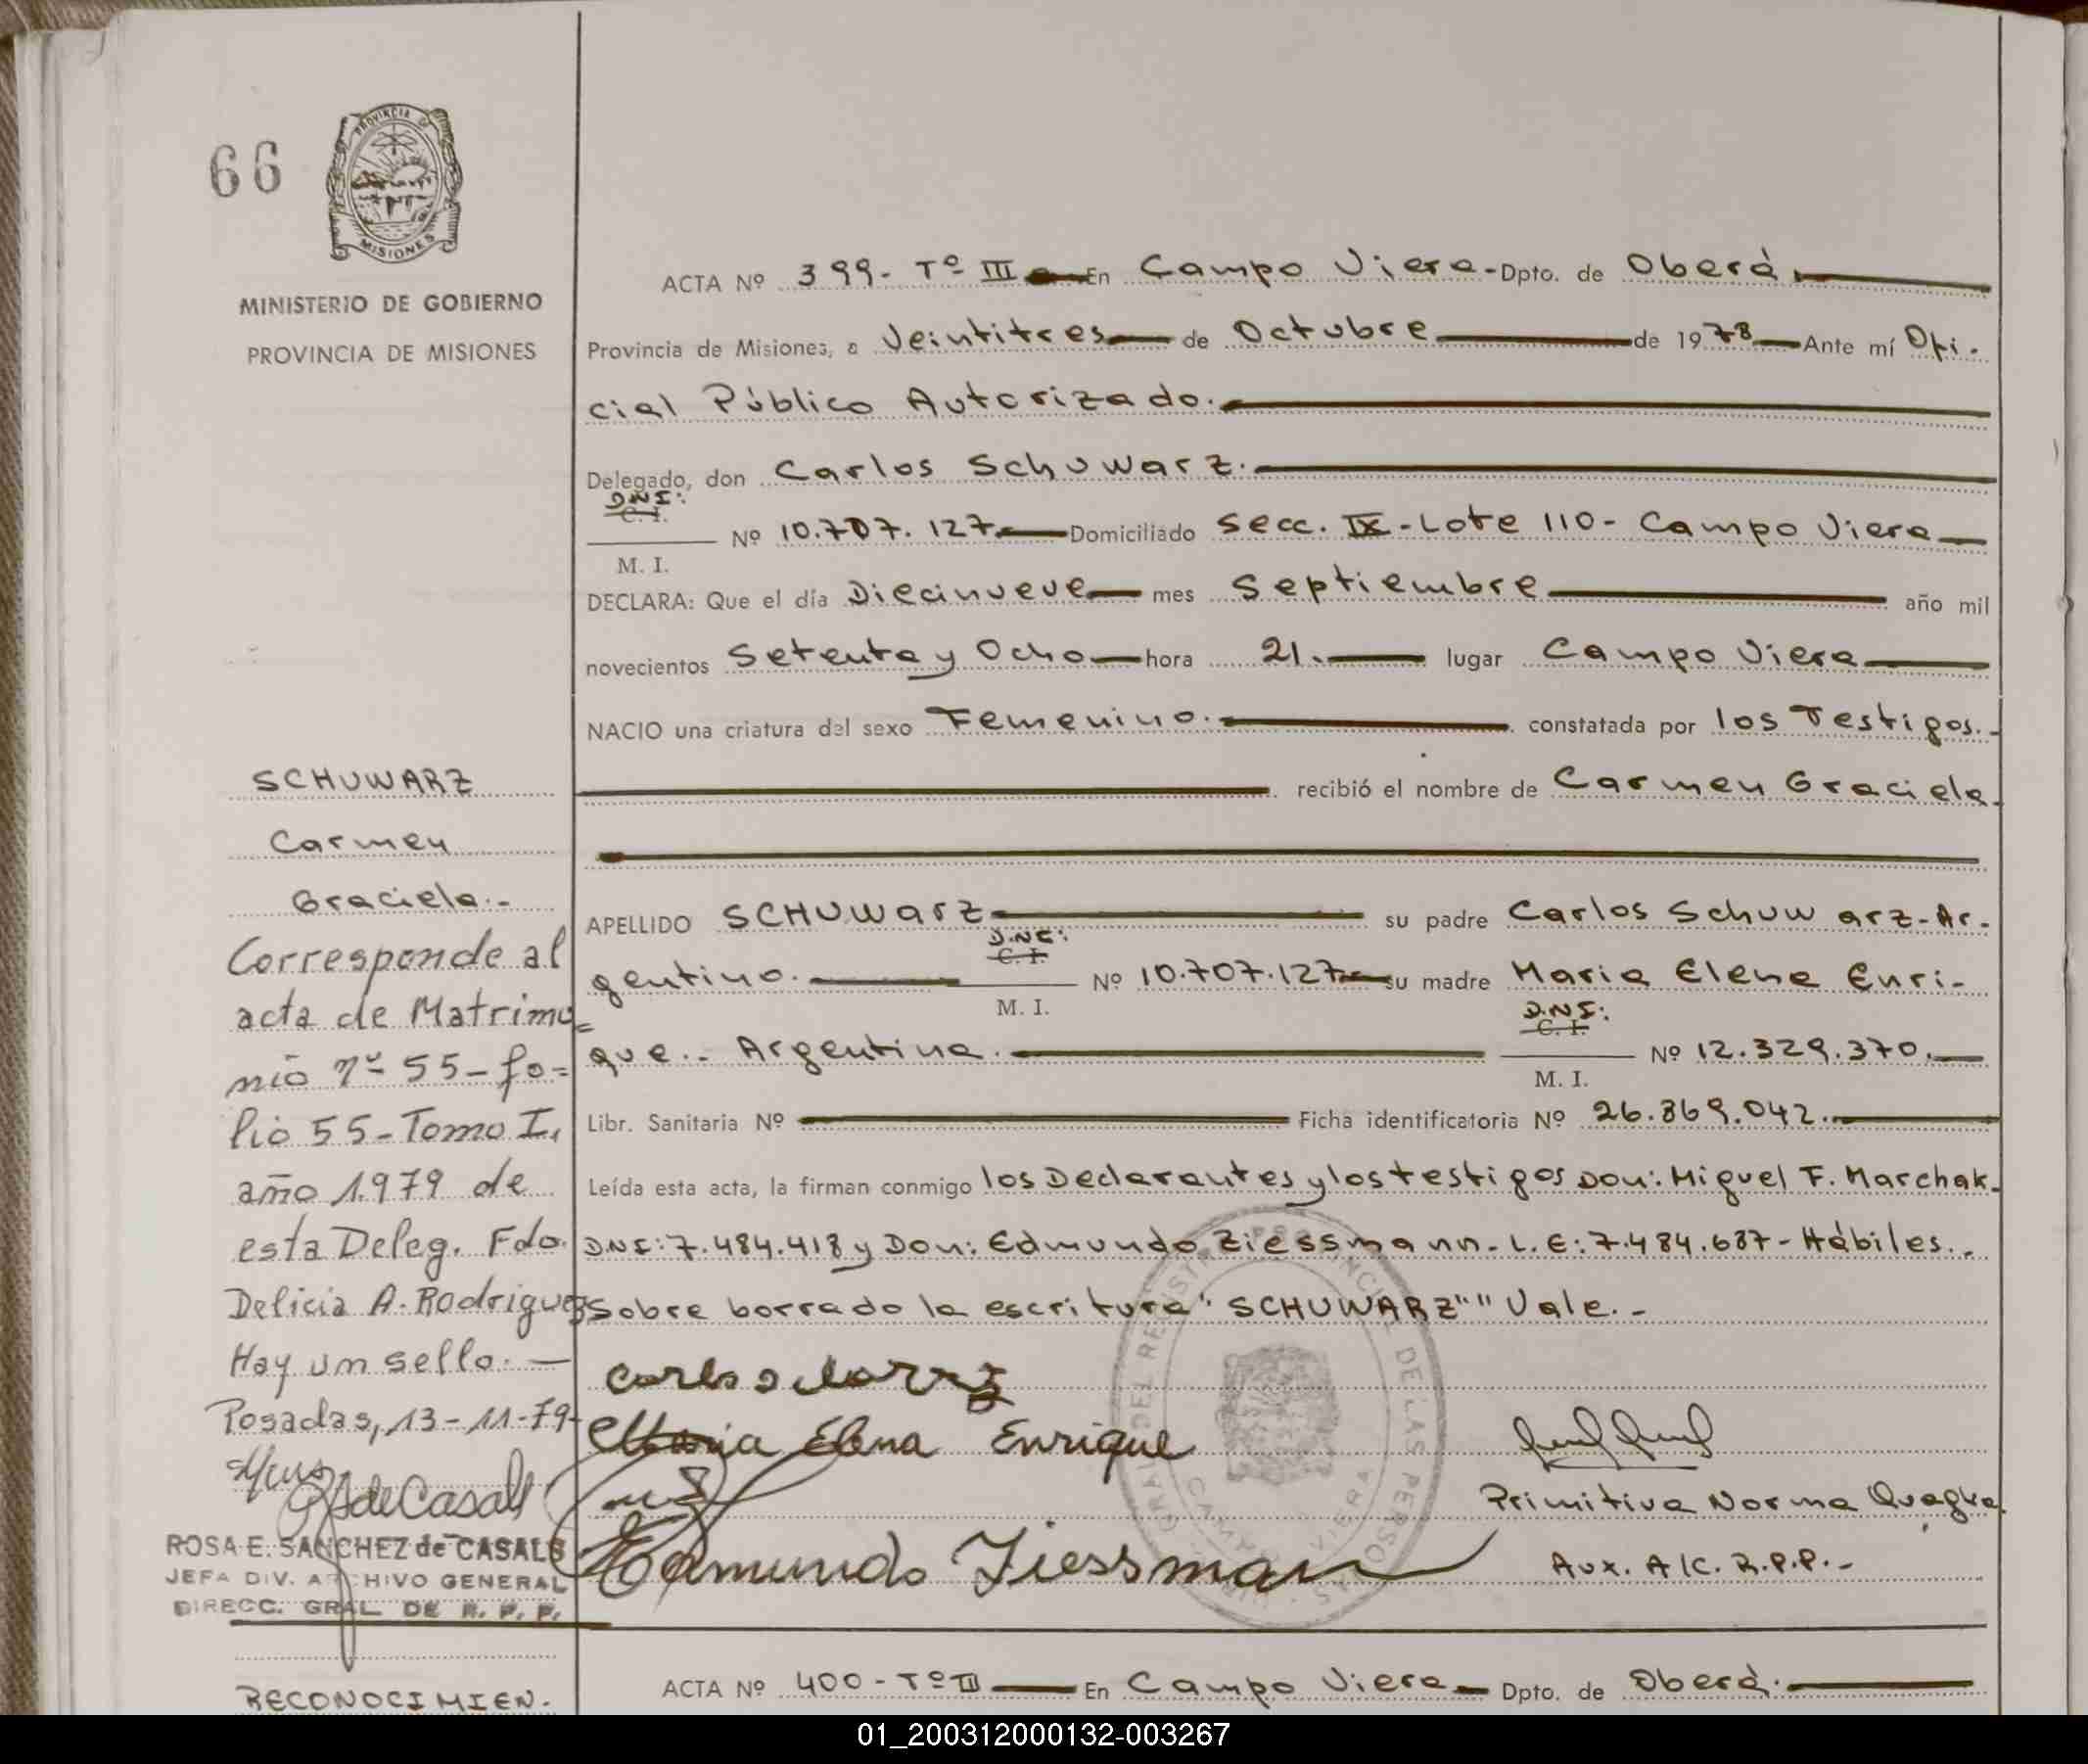 66
PROVINCIA DE
MISIONES
MINISTERIO DE GOBIERNO
PROVINCIA DE MISIONES
ACTA Nº 399- Tº III En Campo Viera- Dpto. de Oberá
Provincia de Misiones, a Veintitres de Octubre de 1978 Ante mí Ofi-
cial Público Autorizado.
Delegado, don Carlos Schuwarz.
D.N.I:
C. I.
Nº 10.707.127. Domiciliado Secc. IX-Lote 110- Campo Viera
M. I.
DECLARA: Que el día Diecinueve mes Septiembre año mil
novecientos Setenta y Ocho hora 21. lugar Campo Viera
NACIO una criatura del sexo Femenino. constatada por los Testigos.-
recibió el nombre de Carmen Graciela.
APELLIDO SCHUWarz su padre Carlos Schuwarz-Ar-
D.N.I:
C. I.
gentino. Nº 10.707.127 su madre Maria Elena Enri-
M. I.
D.N.I:
C. I.
que.- Argentina. Nº 12.329.370.
M. I.
Libr. Sanitaria Nº Ficha identificatoria Nº 26.869.042.
Leída esta acta, la firman conmigo los Declarantes y los testigos Don: Miguel F. Marchak.
D.N.I: 7.484.418 y Don: Edmundo Ziessmann- L.E: 7.484.687- Hábiles.-
Sobre borrado la escritura "SCHUWARZ"" Vale.-
Maria Elena Enrique
Edmundo Ziessman
Primitiva Norma
Aux. A/C. R.P.P.-
SCHUWARZ
Carmen
Graciela.-
Corresponde al
acta de Matrimo=
nio nº 55- fo=
lio 55- Tomo I,
año 1.979 de
esta Deleg. Fdo.
Delicia A. Rodriguez
Hay un sello.—
Posadas, 13-11-79-
de Casals
ROSA E. SANCHEZ de CASALS
JEFA DIV. ARCHIVO GENERAL
DIRECC. GRAL DE R. P. P.
RECONOCIMIEN-
ACTA Nº 400- Tº III En Campo Viera Dpto. de Oberá.
01_200312000132-003267